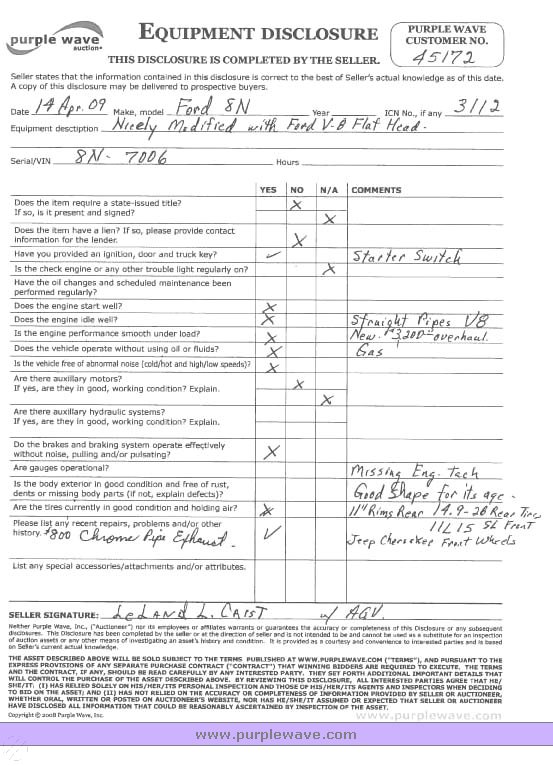 purple wave
auction
EQUIPMENT DISCLOSURE
THIS DISCLOSURE IS COMPLETED BY THE SELLER.
PURPLE WAVE
CUSTOMER NO.
45172
Seller states that the information contained in this disclosure is correct to the best of Seller's actual knowledge as of this date.
A copy of this disclosure may be delivered to prospective buyers.
Date 14 Apr. 09 Make, model Ford 8N Year ICN No., if any 3112
Equipment desctiption Nicely Modified with Ford V-8 Flat Head.
Serial/VIN 8N- 7006 Hours
YES NO N/A COMMENTS
Does the item require a state-issued title? X
If so, is it present and signed? X
Does the item have a lien? If so, please provide contact
information for the lender. X
Have you provided an ignition, door and truck key? ✓ Starter Switch
Is the check engine or any other trouble light regularly on? X
Have the oil changes and scheduled maintenance been
performed regularly?
Does the engine start well? X
Does the engine idle well? X Straight Pipes V8
Is the engine performance smooth under load? X New $3,200 overhaul.
Does the vehicle operate without using oil or fluids? X Gas
Is the vehicle free of abnormal noise (cold/hot and high/low speeds)? X
Are there auxillary motors? X
If yes, are they in good, working condition? Explain. X
Are there auxillary hydraulic systems?
If yes, are they in good, working condition? Explain.
Do the brakes and braking system operate effectively
without noise, pulling and/or pulsating? X
Are gauges operational? Missing Eng. Tach
Is the body exterior in good condition and free of rust,
dents or missing body parts (if not, explain defects)? Good Shape for its age.
Are the tires currently in good condition and holding air? X 11" Rims Rear 14.9-28 Rear Tire
Please list any recent repairs, problems and/or other
history. $800 Chrome Pipe Exhaust. ✓ 11L15 SL Front
Jeep Cherokee Front Wheels
List any special accessories/attachments and/or attributes.
SELLER SIGNATURE: LeLand L. Carst w/ AGV.
Neither Purple Wave, Inc., ("Auctioneer") nor its employees or affiliates warrants or guarantees the accuracy or completeness of this Disclosure or any subsequent
disclosures. This Disclosure has been completed by the seller or at the direction of seller and is not intended to be and cannot be used as a substitute for an inspection
of auction assets or any other means of investigating an asset's history and condition. It is provided as a courtesy and convenience to interested parties and is based
on Seller's current actual knowledge.
THE ASSET DESCRIBED ABOVE WILL BE SOLD SUBJECT TO THE TERMS PUBLISHED AT WWW.PURPLEWAVE.COM ("TERMS"), AND PURSUANT TO THE
EXPRESS PROVISIONS OF ANY SEPARATE PURCHASE CONTRACT ("CONTRACT") THAT WINNING BIDDERS ARE REQUIRED TO EXECUTE. THE TERMS
AND THE CONTRACT, IF ANY, SHOULD BE READ CAREFULLY BY ANY INTERESTED PARTY. THEY SET FORTH ADDITIONAL IMPORTANT DETAILS THAT
WILL CONTROL THE PURCHASE OF THE ASSET DESCRIBED ABOVE. BY REVIEWING THIS DISCLOSURE, ALL INTERESTED PARTIES AGREE THAT HE/
SHE/IT: (I) HAS RELIED SOLELY ON HIS/HER/ITS PERSONAL INSPECTION AND THOSE OF HIS/HER/ITS AGENTS AND INSPECTORS WHEN DECIDING
TO BID ON THE ASSET; AND (II) HAS NOT RELIED ON THE ACCURACY OR COMPLETENESS OF INFORMATION PROVIDED BY SELLER OR AUCTIONEER,
WHETHER ORAL, WRITTEN OR POSTED ON AUCTIONEER'S WEBSITE, NOR HAS HE/SHE/IT ASSUMED OR EXPECTED THAT SELLER OR AUCTIONEER
HAVE DISCLOSED ALL INFORMATION THAT COULD BE REASONABLY ASCERTAINED BY INSPECTION OF THE ASSET.
Copyright © 2008 Purple Wave, Inc.
www.purplewave.com
www.purplewave.com